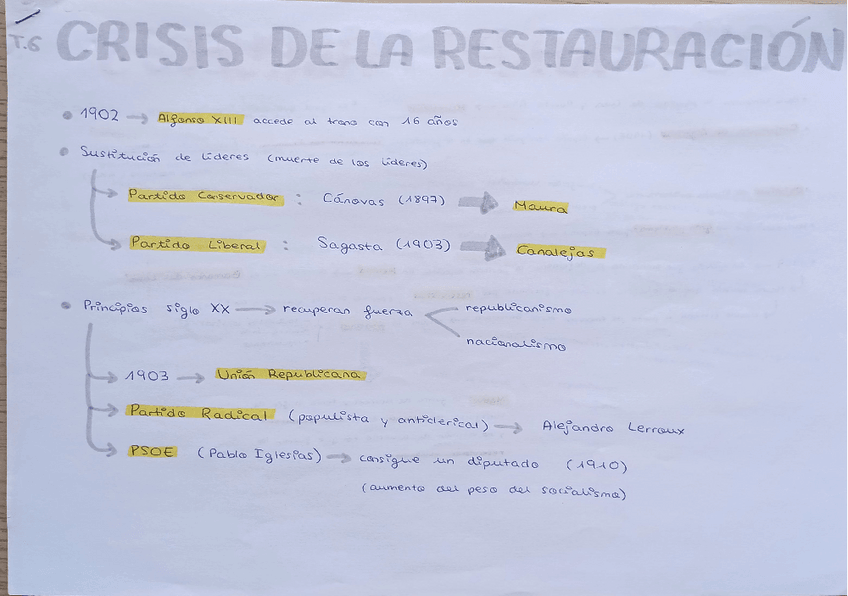 T.6 CRISIS DE LA RESTAURACIÓN
• 1902 → Alfonso XIII accede al trono con 16 años
• Sustitución de líderes (muerte de los líderes)
→ Partido Conservador : Cánovas (1897) → Maura
→ Partido Liberal : Sagasta (1903) → Canalejas
• Principios siglo XX → recuperan fuerza
republicanismo
nacionalismo
→ 1903 → Unión Republicana
→ Partido Radical (populista y anticlerical) → Alejandro Lerroux
→ PSOE (Pablo Iglesias) → consigue un diputado (1910)
(aumento del peso del socialismo)